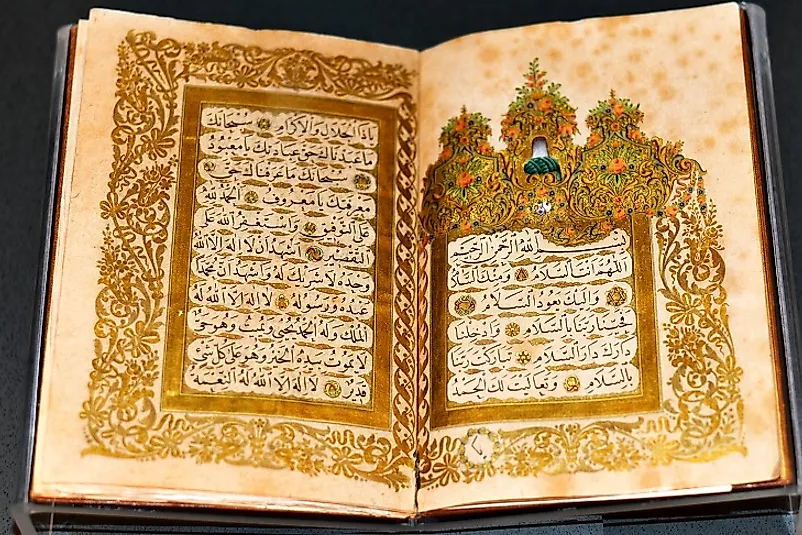 بسم الله الرحمن الرحيم
اللهم انت السلام ومنك السلام
واليك يعود السلام
فحينا ربنا بالسلام وادخلنا
دارك دار السلام تباركت ربنا
بالسلام وتعاليت لك الحمد
ياذا الجلال والاكرام سبحانك
ما عبدناك حق عبادتك يا معبود
سبحانك ما عرفناك حق
معرفتك يا معروف الحمد لله
على التوفيق واستغفر الله على
التقصير اشهد ان لا اله الا الله
وحده لا شريك له واشهد ان محمدا
عبده ورسوله لا اله الا الله له
الملك وله الحمد يحيى ويميت وهو حي
لا يموت بيده الخير وهو على كل شئ
قدير لا اله الا الله له النعمة